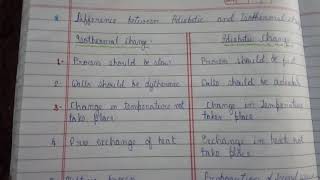 Difference between Adiabatic and Isothermal
Isothermal Change Adiabatic Change
1- Process should be slow Process should be fast
2- Walls should be diathermic Walls should be adiabatic
3- Change in temperature not Change in Temperature
take place takes place
4. Free exchange of heat Exchange in heat not
take place